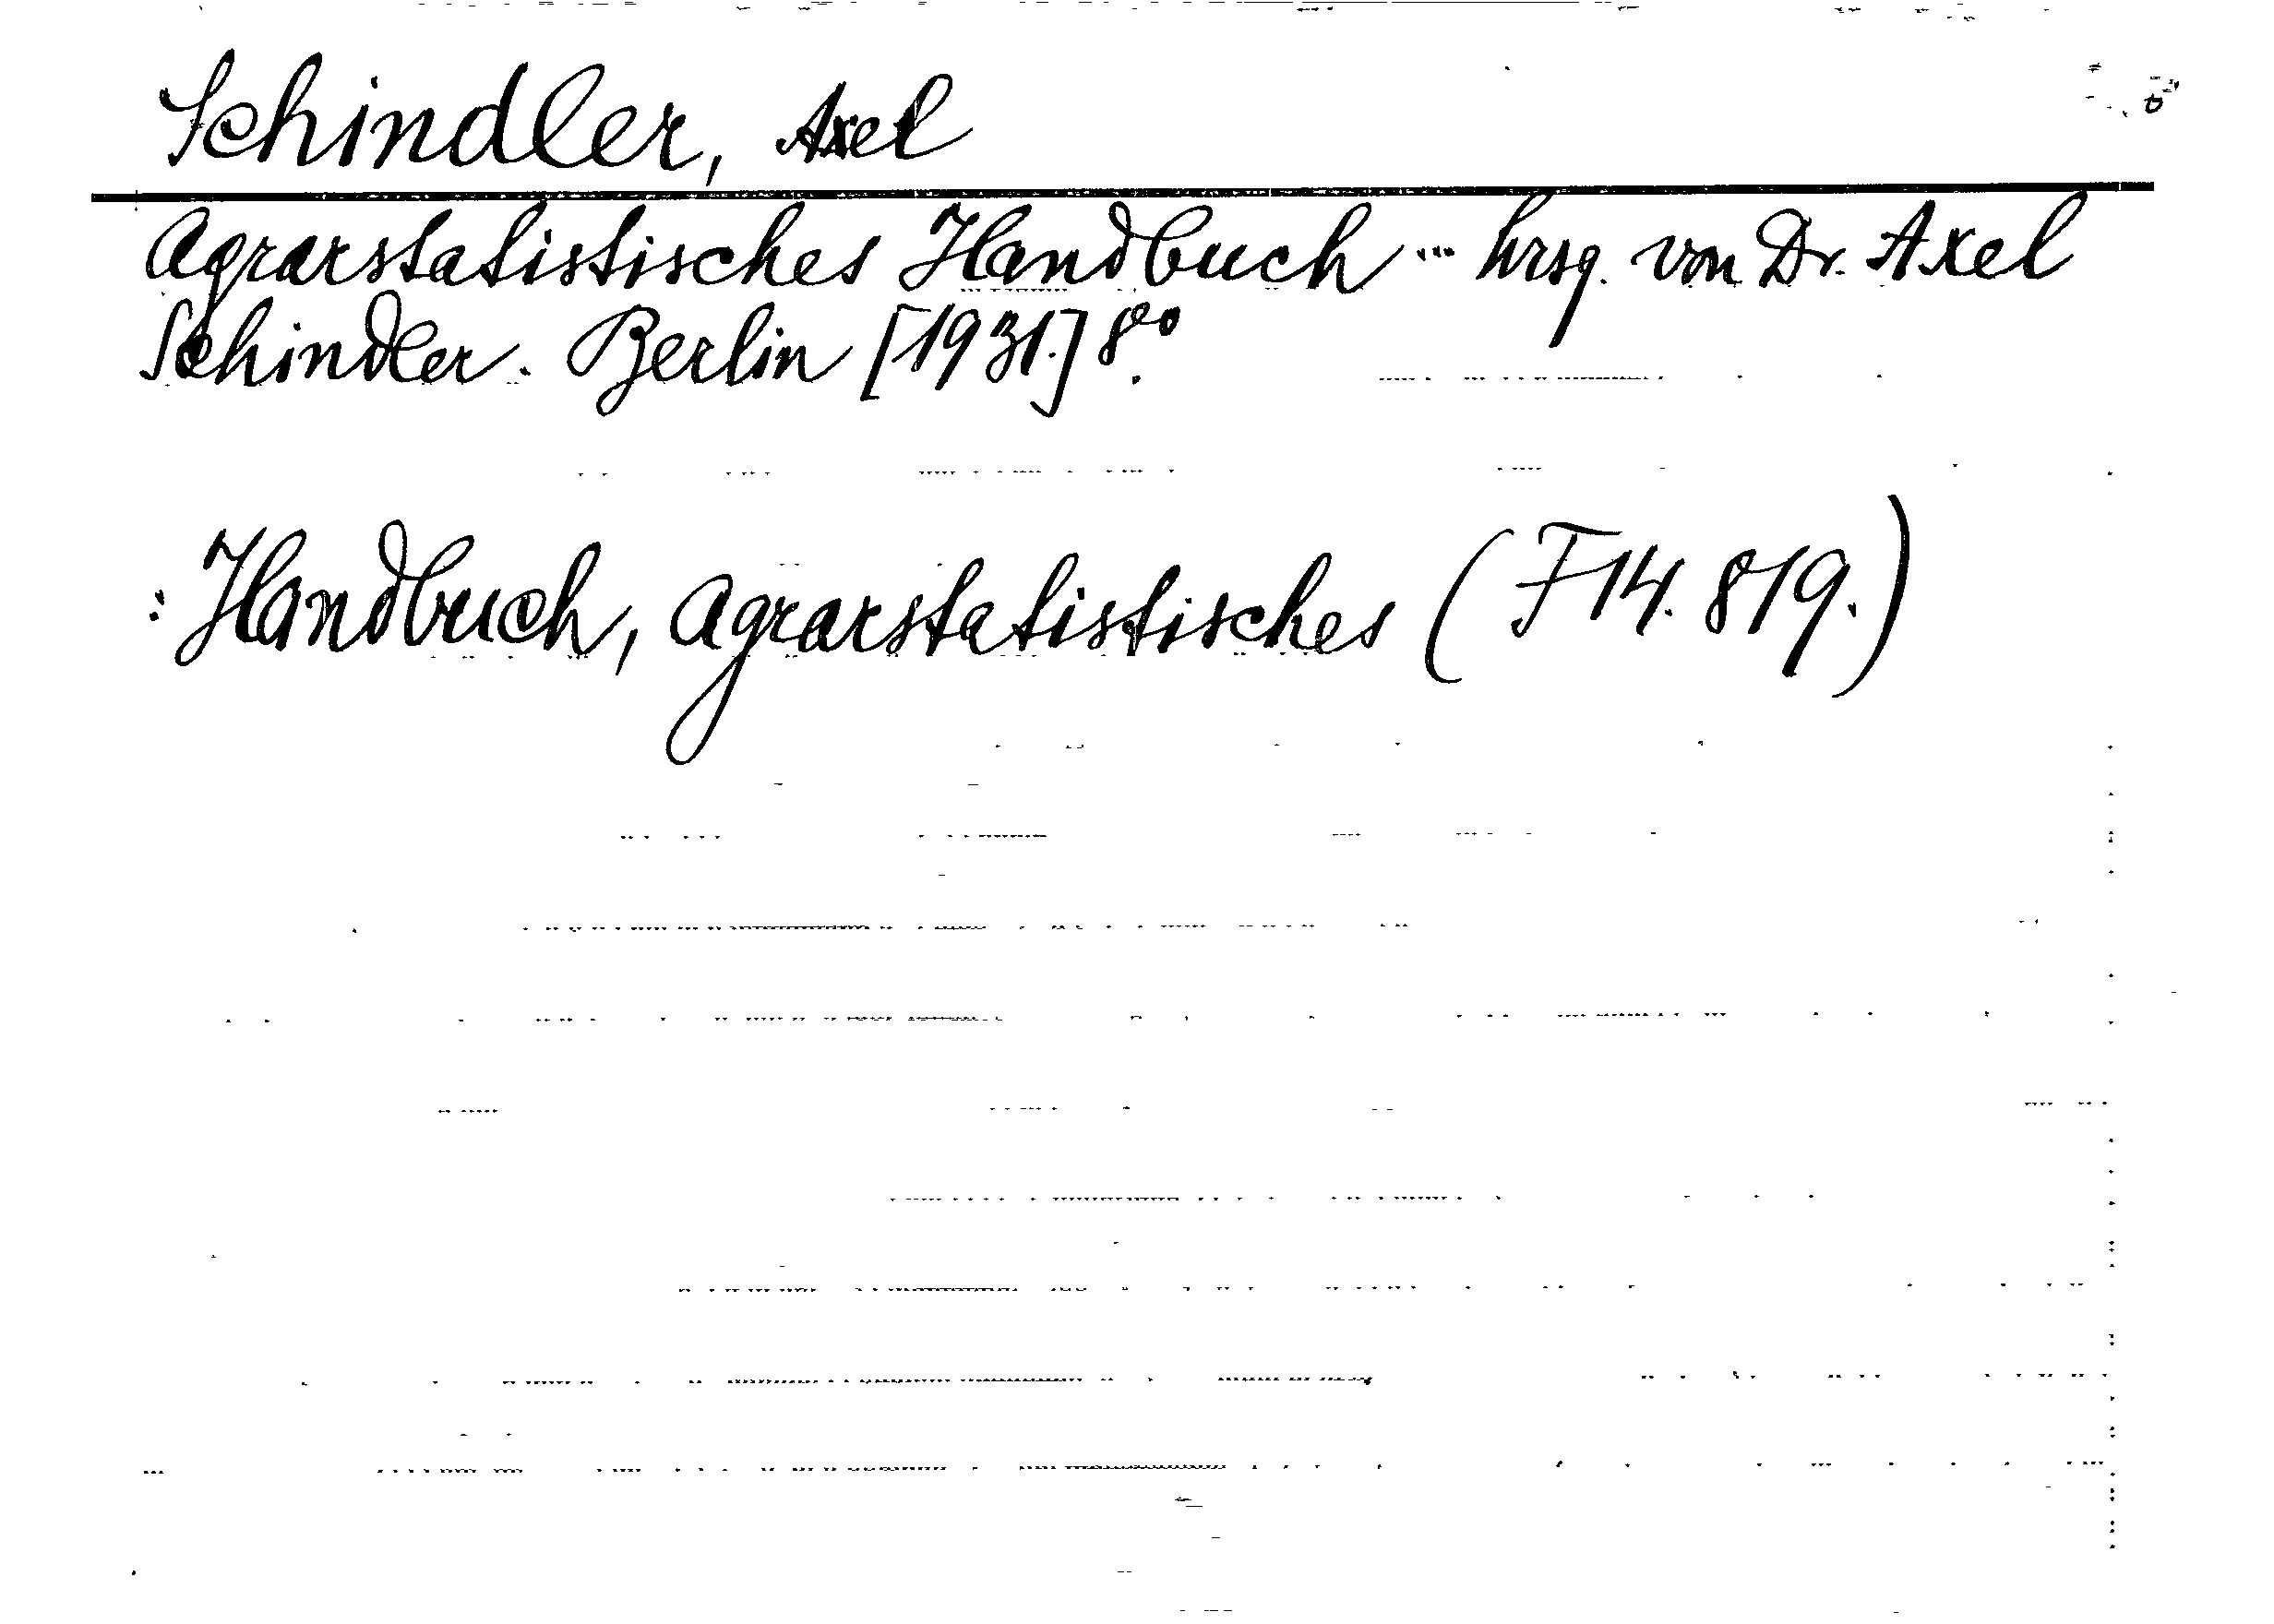 Schindler, Axel
Agrarstatistisches Handbuch ... hrsg. von Dr. Axel
Schindler. Berlin [1931.] 8°.
: Handbuch, Agrarstatistisches (F 14. 819.)